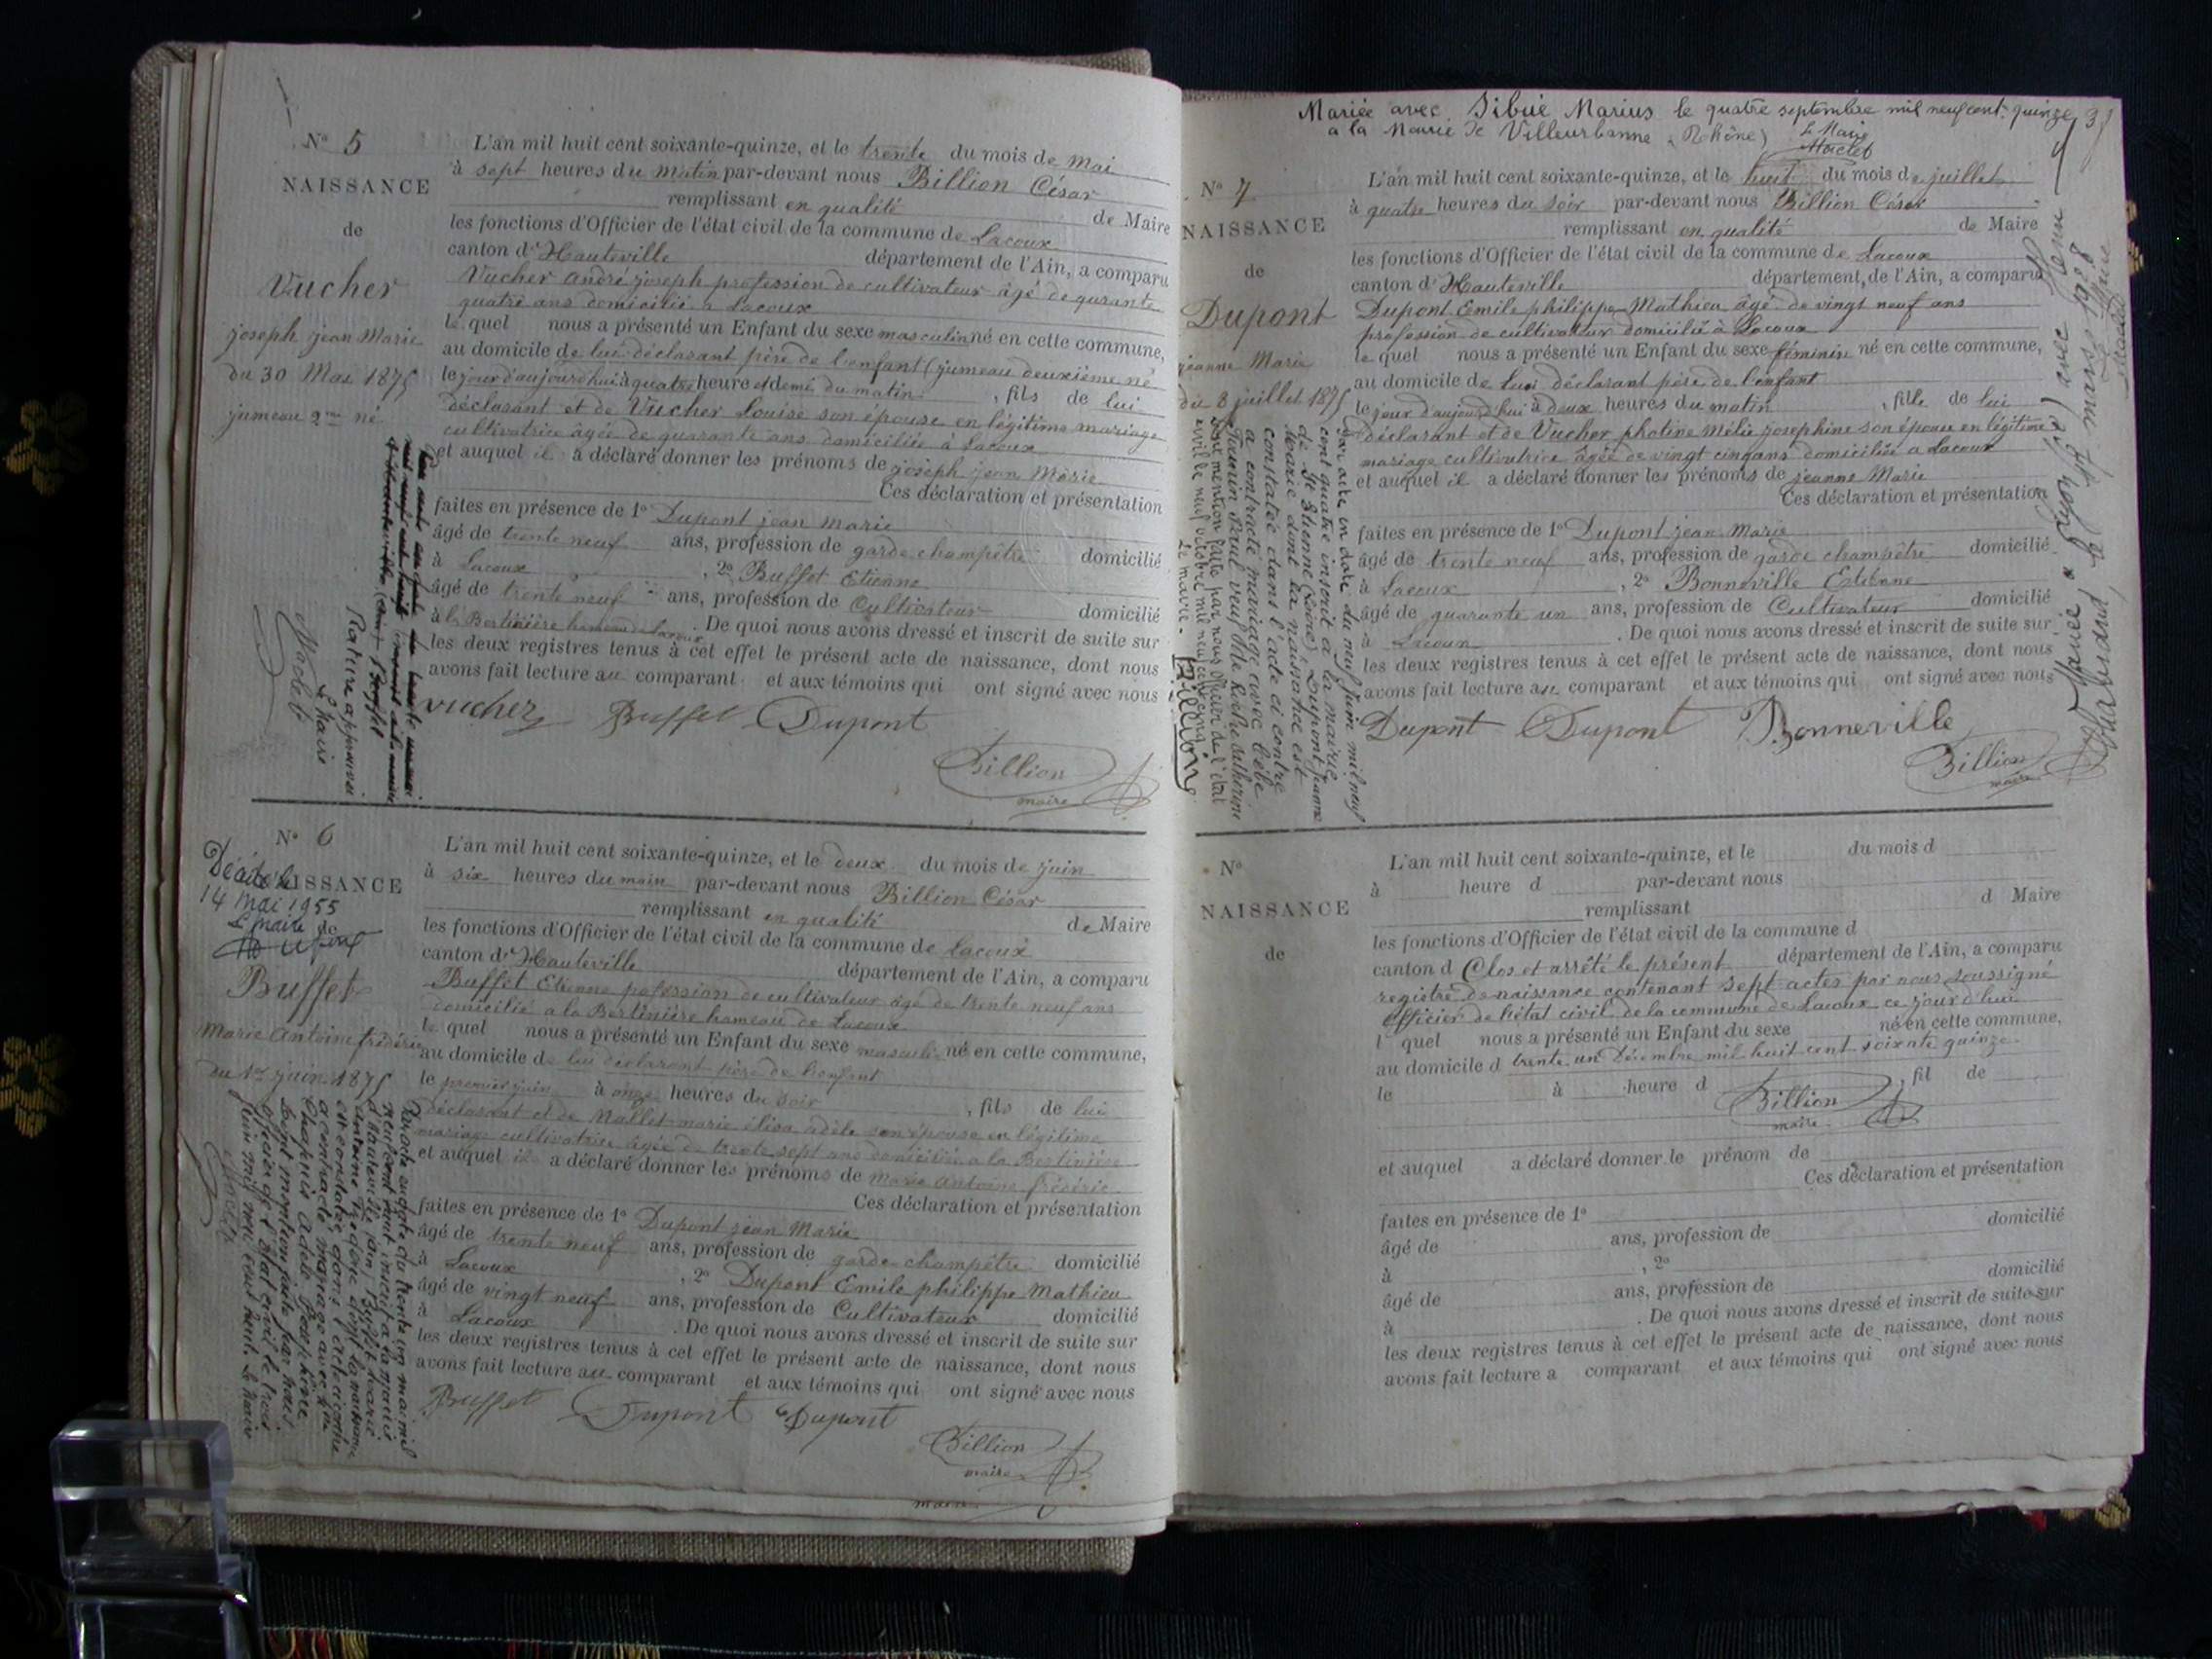 N° 5
NAISSANCE
de
Vucher
joseph jean Marie
du 30 Mai 1875
jumeau 2me né
L'an mil huit cent soixante-quinze, et le trente du mois de Mai
à sept heures du matin par-devant nous Billion César
remplissant en qualité de Maire
les fonctions d'Officier de l'état civil de la commune de Lacoux
canton d'Hauteville département de l'Ain, a comparu
Vucher andré joseph profession de cultivateur âgé de qurante
quatre ans domicilié a Lacoux
le quel nous a présenté un Enfant du sexe masculin né en cette commune,
au domicile de lui déclarant père de l'enfant (jumeau deuxième né
le jour d'aujourd'hui à quatre heure et demé du matin, fils de lui
déclarant et de Vucher Louise son épouse en légitime mariage
cultivatrice âgée de quarante ans domiciliée à Lacoux
et auquel il a déclaré donner les prénoms de joseph jean Marie
Ces déclaration et présentation
faites en présence de 1° Dupont jean marie
âgé de trente neuf ans, profession de garde champêtre domicilié
à Lacoux, 2° Buffet Etienne
âgé de trente neuf ans, profession de Cultivateur domicilié
à la Bertinière hameau de Lacoux. De quoi nous avons dressé et inscrit de suite sur
les deux registres tenus à cet effet le présent acte de naissance, dont nous
avons fait lecture au comparant et aux témoins qui ont signé avec nous
Vucher Buffet Dupont
Billion
maire
Rature approuvée
Le Maire
N° 6
NAISSANCE
Décédé le
14 Mai 1955
Le maire
de
Buffet
Marie Antoine frédéric
du 1er juin 1875
L'an mil huit cent soixante-quinze, et le deux du mois de juin
à six heures du main par-devant nous Billion César
remplissant en qualité de Maire
les fonctions d'Officier de l'état civil de la commune de Lacoux
canton d'Hauteville département de l'Ain, a comparu
Buffet Etienne pofession de cultivateur âgé de trente neuf ans
domicilié a la Bertinière hameau de Lacoux
le quel nous a présenté un Enfant du sexe masculin né en cette commune,
au domicile de lui déclarant père de l'enfant
le premier juin à onze heures du soir, fils de lui
déclarant et de Mallet marie élisa adèle son épouse en légitime
mariage cultivatrice âgée de trente sept ans domiciliée a la Bertinière
et auquel il a déclaré donner les prénoms de marie antoine frédéric
Ces déclaration et présentation
faites en présence de 1° Dupont jean Marie
âgé de trente neuf ans, profession de garde champêtre domicilié
à Lacoux, 2° Dupont Emile philippe Mathieu
âgé de vingt neuf ans, profession de Cultivateur domicilié
à Lacoux. De quoi nous avons dressé et inscrit de suite sur
les deux registres tenus à cet effet le présent acte de naissance, dont nous
avons fait lecture au comparant et aux témoins qui ont signé avec nous
Buffet Dupont Dupont
Billion
maire
Par acte en date du trente un mai mil
neuf cent huit inscrit à la mairie
d'Hauteville (ain) Buffet Marie
antoine frédéric dont la naissance
est constatée dans l'acte ci contre
a contracté mariage avec
adèle Joséphine
Dont mention faite par nous
officier de l'état civil le trois
juin mil neuf cent huit Le Maire
Mariée avec Sibué Marius le quatre septembre mil neuf cent quinze
a la Mairie de Villeurbanne (Rhône)
Le Maire
N° 7
NAISSANCE
de
Dupont
jeanne Marie
du 8 juillet 1875
L'an mil huit cent soixante-quinze, et le huit du mois de juillet
à quatre heures du soir par-devant nous Billion César
remplissant en qualité de Maire
les fonctions d'Officier de l'état civil de la commune de Lacoux
canton d'Hauteville département de l'Ain, a comparu
Dupont Emile philippe Mathieu âgé de vingt neuf ans
profession de cultivateur domicilié à Lacoux
le quel nous a présenté un Enfant du sexe féminin né en cette commune,
au domicile de lui déclarant père de l'enfant
le jour d'aujourd'hui à deux heures du matin, fille de lui
déclarant et de Vucher photine Mélie josephine son épouse en légitime
mariage cultivatrice âgée de vingt cinq ans domiciliée a Lacoux
et auquel il a déclaré donner les prénoms de jeanne Marie
Ces déclaration et présentation
faites en présence de 1° Dupont jean Marie
âgé de trente neuf ans, profession de garde champêtre domicilié
à Lacoux, 2° Bonneville Etienne
âgé de quarante un ans, profession de Cultivateur domicilié
à Lacoux. De quoi nous avons dressé et inscrit de suite sur
les deux registres tenus à cet effet le présent acte de naissance, dont nous
avons fait lecture au comparant et aux témoins qui ont signé avec nous
Dupont Dupont Bonneville
Billion
maire
Par acte en date du neuf juin mil neuf
cent quatre inscrit à la mairie
de St Etienne (Loire) Dupont jeanne
Marie dont la naissance est
constatée dans l'acte ci contre
a contracté mariage avec
Dont mention faite par nous officier de l'état
civil le neuf octobre mil neuf cent
Le maire
Billion
Mariée à Lyon avec
mars 1928
Le Maire
N°
NAISSANCE
de
L'an mil huit cent soixante-quinze, et le du mois d
à heure d par-devant nous
remplissant d Maire
les fonctions d'Officier de l'état civil de la commune d
canton d département de l'Ain, a comparu
Clos et arrêté le présent
registre de naissance contenant sept actes par nous soussigné
officier de l'état civil de la commune de Lacoux ce jour d'hui
l quel nous a présenté un Enfant du sexe né en cette commune,
au domicile d trente un Décembre mil huit cent soixate quinze.
le à heure d, fil de
Billion
maire
et auquel a déclaré donner le prénom de
Ces déclaration et présentation
faites en présence de 1°
âgé de ans, profession de domicilié
à, 2°
âgé de ans, profession de domicilié
à. De quoi nous avons dressé et inscrit de suite sur
les deux registres tenus à cet effet le présent acte de naissance, dont nous
avons fait lecture a comparant et aux témoins qui ont signé avec nous